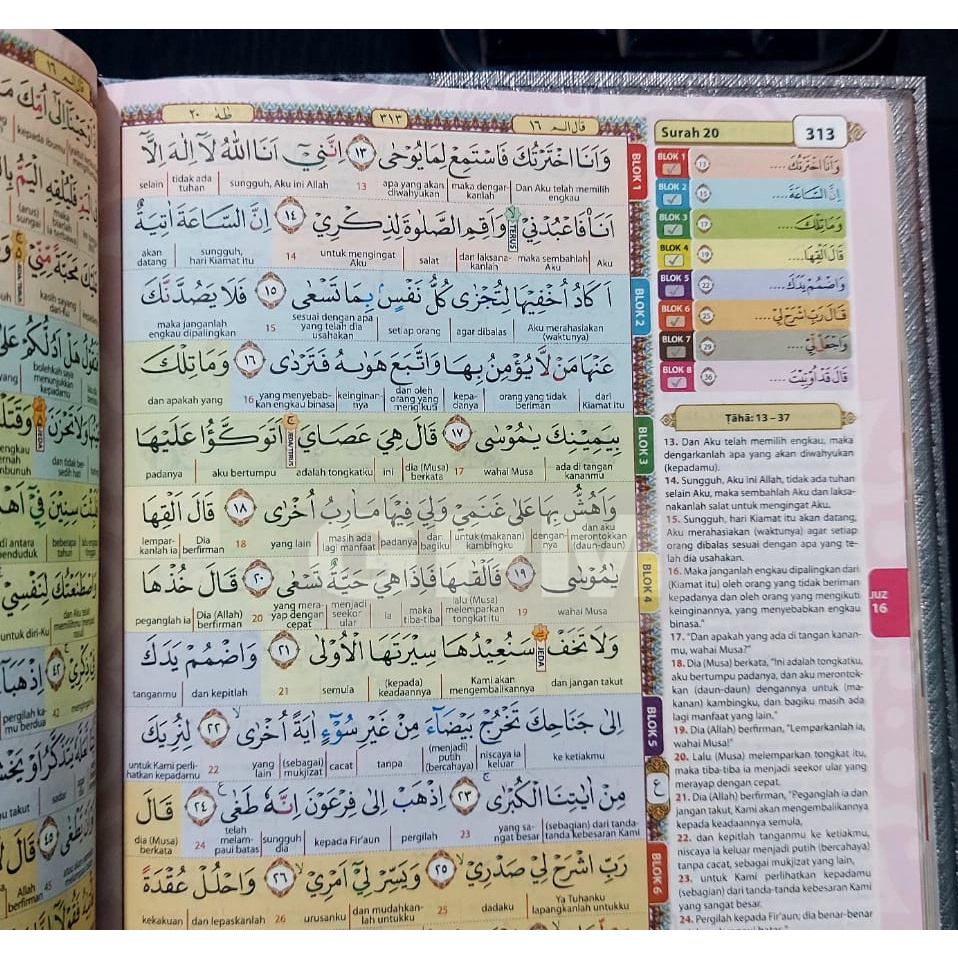 طٰهٰ ٢٠
٣١٣
قال الم ١٦
وَاَنَا اخْتَرْتُكَ فَاسْتَمِعْ لِمَا يُوْحٰى ١٣ اِنَّنِيْٓ اَنَا اللّٰهُ لَآ اِلٰهَ اِلَّآ
Dan Aku telah memilih engkau
maka dengarkanlah
apa yang akan diwahyukan
13
sungguh, Aku ini Allah
tidak ada tuhan
selain
اَنَا۠ فَاعْبُدْنِيْۙ وَاَقِمِ الصَّلٰوةَ لِذِكْرِيْ ١٤ اِنَّ السَّاعَةَ اٰتِيَةٌ
TERUS
Aku
maka sembahlah Aku
dan laksanakanlah
salat
untuk mengingat Aku
14
sungguh, hari Kiamat itu
akan datang
اَكَادُ اُخْفِيْهَا لِتُجْزٰى كُلُّ نَفْسٍۢ بِمَا تَسْعٰى ١٥ فَلَا يَصُدَّنَّكَ
Aku merahasiakan (waktunya)
agar dibalas
setiap orang
sesuai dengan apa yang telah dia usahakan
15
maka janganlah engkau dipalingkan
عَنْهَا مَنْ لَّا يُؤْمِنُ بِهَا وَاتَّبَعَ هَوٰىهُ فَتَرْدٰى ١٦ وَمَا تِلْكَ
dari Kiamat itu
orang yang tidak beriman
kepadanya
dan oleh orang yang mengikuti
keinginannya
yang menyebabkan engkau binasa
16
dan apakah yang
بِيَمِيْنِكَ يٰمُوْسٰى ١٧ قَالَ هِيَ عَصَايَۚ اَتَوَكَّؤُا عَلَيْهَا
JEDA/TERUS
ada di tangan kananmu
wahai Musa
17
dia (Musa) berkata
ini
adalah tongkatku
aku bertumpu
padanya
وَاَهُشُّ بِهَا عَلٰى غَنَمِيْ وَلِيَ فِيْهَا مَاٰرِبُ اُخْرٰى ١٨ قَالَ اَلْقِهَا
dan aku merontokkan (daun-daun)
dengannya
untuk (makanan) kambingku
dan bagiku
padanya
masih ada lagi manfaat
yang lain
18
Dia berfirman
lemparkanlah ia
يٰمُوْسٰى ١٩ فَاَلْقٰىهَا فَاِذَا هِيَ حَيَّةٌ تَسْعٰى ٢٠ قَالَ خُذْهَا
wahai Musa
19
lalu (Musa) melemparkan tongkat itu
maka tiba-tiba
ia
menjadi seekor ular
yang merayap dengan cepat
20
Dia (Allah) berfirman
peganglah ia
وَلَا تَخَفْۗ سَنُعِيْدُهَا سِيْرَتَهَا الْاُوْلٰى ٢١ وَاضْمُمْ يَدَكَ
JEDA
dan jangan takut
Kami akan mengembalikannya
(kepada) keadaannya
semula
21
dan kepitlah
tanganmu
اِلٰى جَنَاحِكَ تَخْرُجْ بَيْضَاۤءَ مِنْ غَيْرِ سُوْۤءٍ اٰيَةً اُخْرٰىۙ ٢٢ لِنُرِيَكَ
ke ketiakmu
niscaya ia keluar
(menjadi) putih (bercahaya)
tanpa
cacat
(sebagai) mukjizat
yang lain
22
untuk Kami perlihatkan kepadamu
مِنْ اٰيٰتِنَا الْكُبْرٰىۚ ٢٣ اِذْهَبْ اِلٰى فِرْعَوْنَ اِنَّهٗ طَغٰىۚ ٢٤ قَالَ
(sebagian) dari tanda-tanda kebesaran Kami
yang sangat besar
23
pergilah
kepada Fir'aun
sungguh dia
telah melampaui batas
24
dia (Musa) berkata
رَبِّ اشْرَحْ لِيْ صَدْرِيْۙ ٢٥ وَيَسِّرْ لِيْٓ اَمْرِيْۙ ٢٦ وَاحْلُلْ عُقْدَةً
Ya Tuhanku lapangkanlah untukku
dadaku
25
dan mudahkanlah untukku
urusanku
26
dan lepaskanlah
kekakuan
BLOK 1
BLOK 2
BLOK 3
BLOK 4
BLOK 5
ع
BLOK 6
Surah 20
313
BLOK 1 13 وَاَنَا اخْتَرْتُكَ....
BLOK 2 15 اِنَّ السَّاعَةَ....
BLOK 3 17 وَمَا تِلْكَ....
BLOK 4 19 قَالَ اَلْقِهَا....
BLOK 5 22 وَاضْمُمْ يَدَكَ....
BLOK 6 25 قَالَ رَبِّ اشْرَحْ لِيْ....
BLOK 7 29 وَاجْعَلْ لِّيْ....
BLOK 8 36 قَالَ قَدْ اُوْتِيْتَ....
Ṭāhā: 13 – 37
13. Dan Aku telah memilih engkau, maka
dengarkanlah apa yang akan diwahyukan
(kepadamu).
14. Sungguh, Aku ini Allah, tidak ada tuhan
selain Aku, maka sembahlah Aku dan laksa-
nakanlah salat untuk mengingat Aku.
15. Sungguh, hari Kiamat itu akan datang,
Aku merahasiakan (waktunya) agar setiap
orang dibalas sesuai dengan apa yang te-
lah dia usahakan.
16. Maka janganlah engkau dipalingkan dari
(Kiamat itu) oleh orang yang tidak beriman
kepadanya dan oleh orang yang mengikuti
keinginannya, yang menyebabkan engkau
binasa."
17. "Dan apakah yang ada di tangan kanan-
mu, wahai Musa?"
18. Dia (Musa) berkata, "Ini adalah tongkatku,
aku bertumpu padanya, dan aku merontok-
kan (daun-daun) dengannya untuk (ma-
kanan) kambingku, dan bagiku masih ada
lagi manfaat yang lain."
19. Dia (Allah) berfirman, "Lemparkanlah ia,
wahai Musa!"
20. Lalu (Musa) melemparkan tongkat itu,
maka tiba-tiba ia menjadi seekor ular yang
merayap dengan cepat.
21. Dia (Allah) berfirman, "Peganglah ia dan
jangan takut, Kami akan mengembalikannya
kepada keadaannya semula,
22. dan kepitlah tanganmu ke ketiakmu,
niscaya ia keluar menjadi putih (bercahaya)
tanpa cacat, sebagai mukjizat yang lain,
23. untuk Kami perlihatkan kepadamu
(sebagian) dari tanda-tanda kebesaran Kami
yang sangat besar.
24. Pergilah kepada Fir'aun; dia benar-benar
JUZ
16